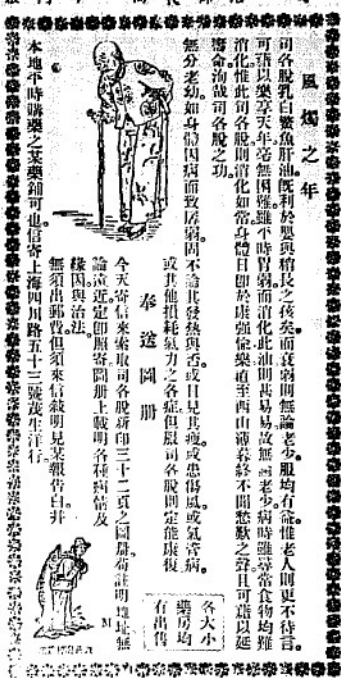 風燭之年
司各脫乳白鰵魚肝油既利於嬰與稍長之孩矣而衰弱則無論老少服均有益惟老人則更不待言
可藉以樂享天年毫無困難雖平時胃弱而消化此油則甚易易故無論老少病時雖尋常食物均難
消化惟此司各脫則消化如常身體日即於康强愉樂直至西山薄暮終不聞愁歎之聲且可藉以延
壽命洵哉司各脫之功
無分老幼如身體因病而致孱弱固不論其發熱與否或日見其瘦或患傷風或氣管病
或其他損耗氣力之各症但服司各脫則定能康復
奉送圖册
今天寄信來索取司各脫新印三十二頁之圖册荷註明地址無
論遠近定即照寄圖册上載明各種病情及
緣因與治法
無須出郵費但須來信敍明見某報告白并
本地平時購藥之某藥鋪可也信寄上海四川路五十三號茂生洋行
各大小
藥房均
有出售
M